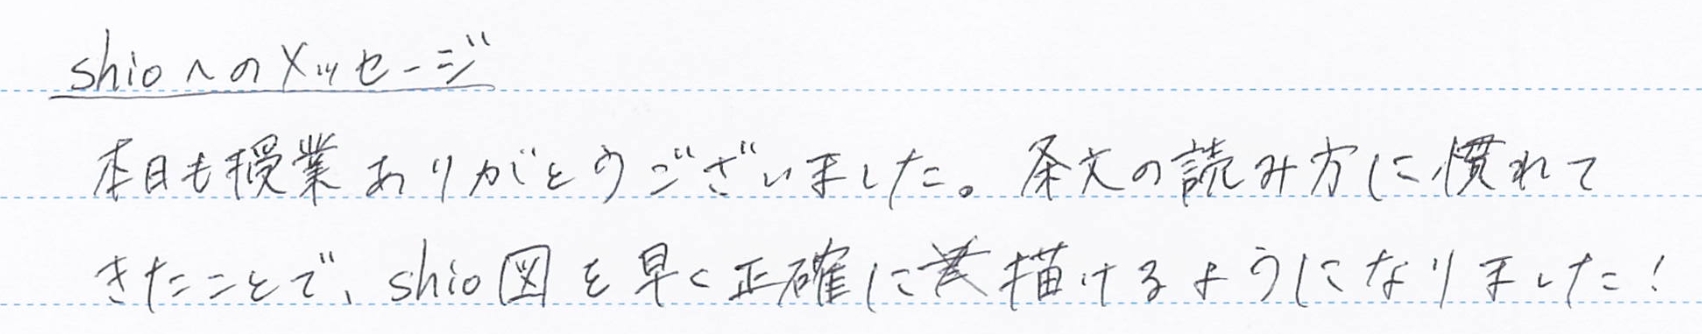 shioへのメッセージ
本日も授業ありがとうございました。条文の読み方に慣れて
きたことで、shio図を早く正確に描けるようになりました!